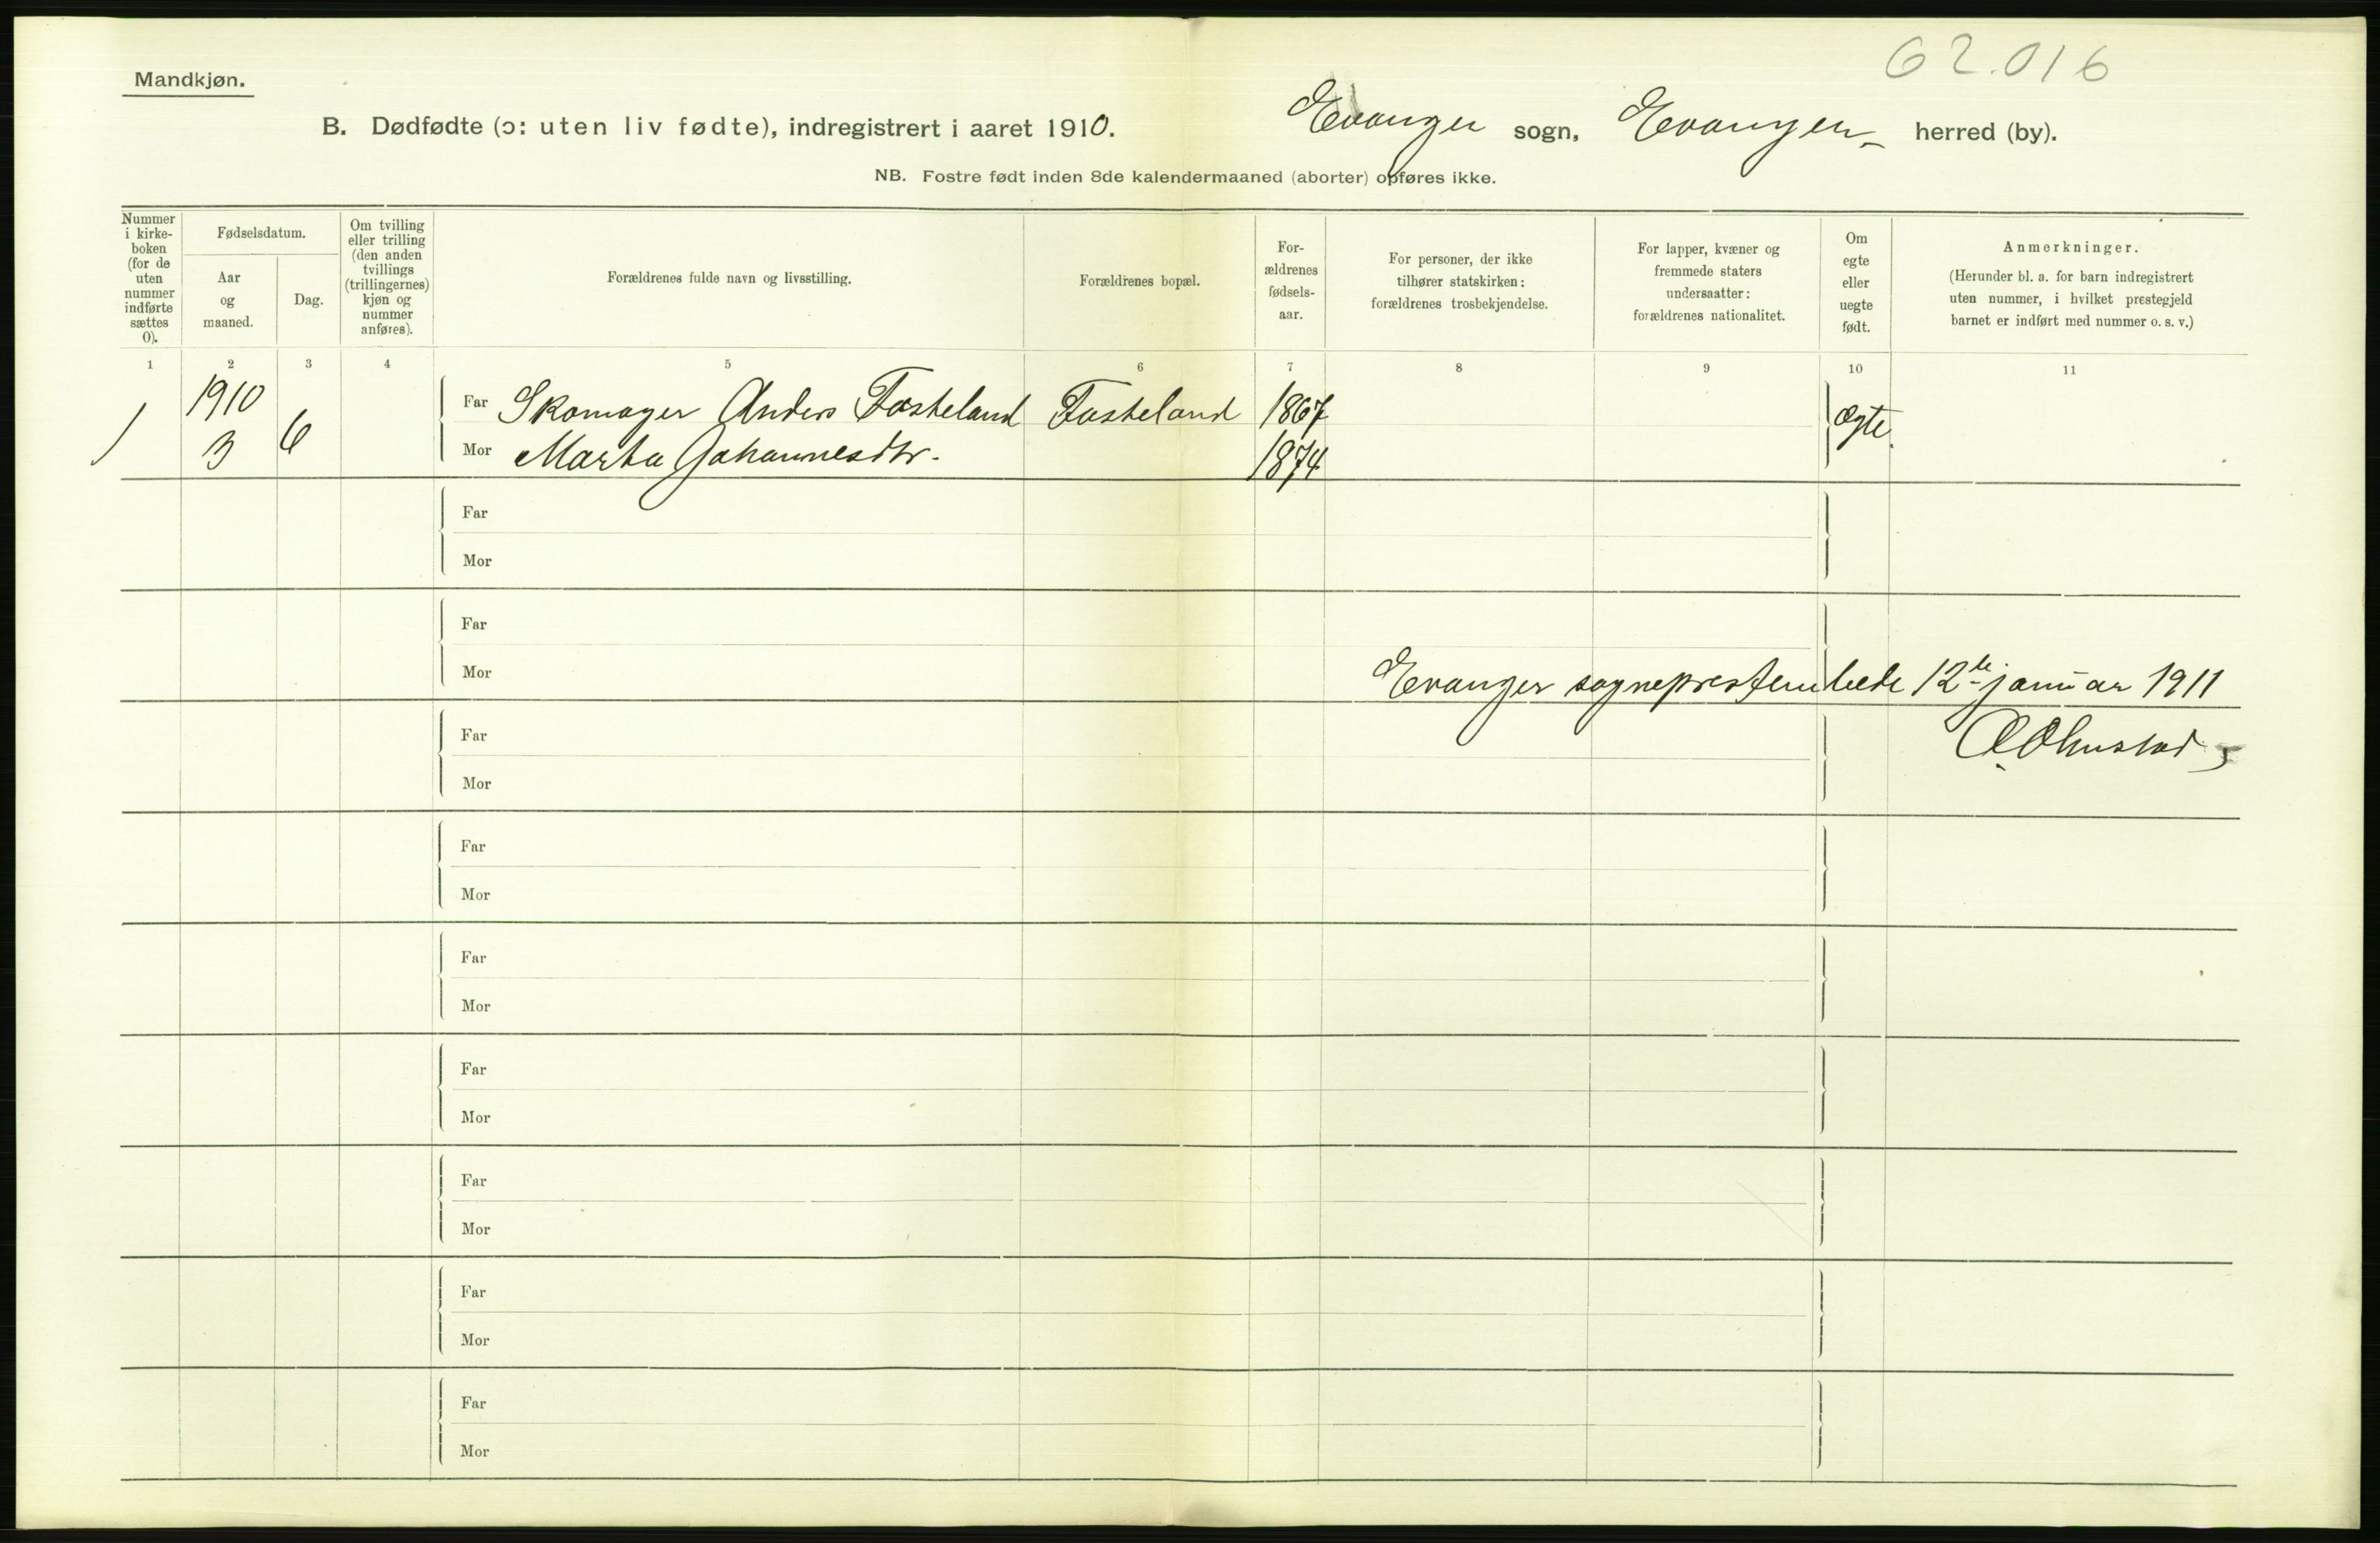 62.016
Mandkjøn.
B. Dødfødte (ɔ: uten liv fødte), indregistrert i aaret 1910. Evanger sogn, Evanger herred (by).
NB. Fostre født inden 8de kalendermaaned (aborter) opføres ikke.
Nummer
i kirke-
boken
(for de
uten
nummer
indførte
sættes
0).
Fødselsdatum.
Aar
og
maaned.
Dag.
Om tvilling
eller trilling
(den anden
tvillings
(trillingernes)
kjøn og
nummer
anføres).
Forældrenes fulde navn og livsstilling.
Forældrenes bopæl.
For-
ældrenes
fødsels-
aar.
For personer, der ikke
tilhører statskirken:
forældrenes trosbekjendelse.
For lapper, kvæner og
fremmede staters
undersaatter:
forældrenes nationalitet.
Om
egte
eller
uegte
født.
Anmerkninger.
(Herunder bl. a. for barn indregistrert
uten nummer, i hvilket prestegjeld
barnet er indført med nummer o. s. v.)
1 2 3 4 5 6 7 8 9 10 11
1910
Far Skomager Anders Fosheland Fosheland 1867
1 3 6 Ægte.
Mor Marta Johannesdtr. 1874
Far
Mor
Far
Mor Evanger sogneprestembede 12te januar 1911
Far
Mor
Far
Mor
Far
Mor
Far
Mor
Far
Mor
Far
Mor
Far
Mor